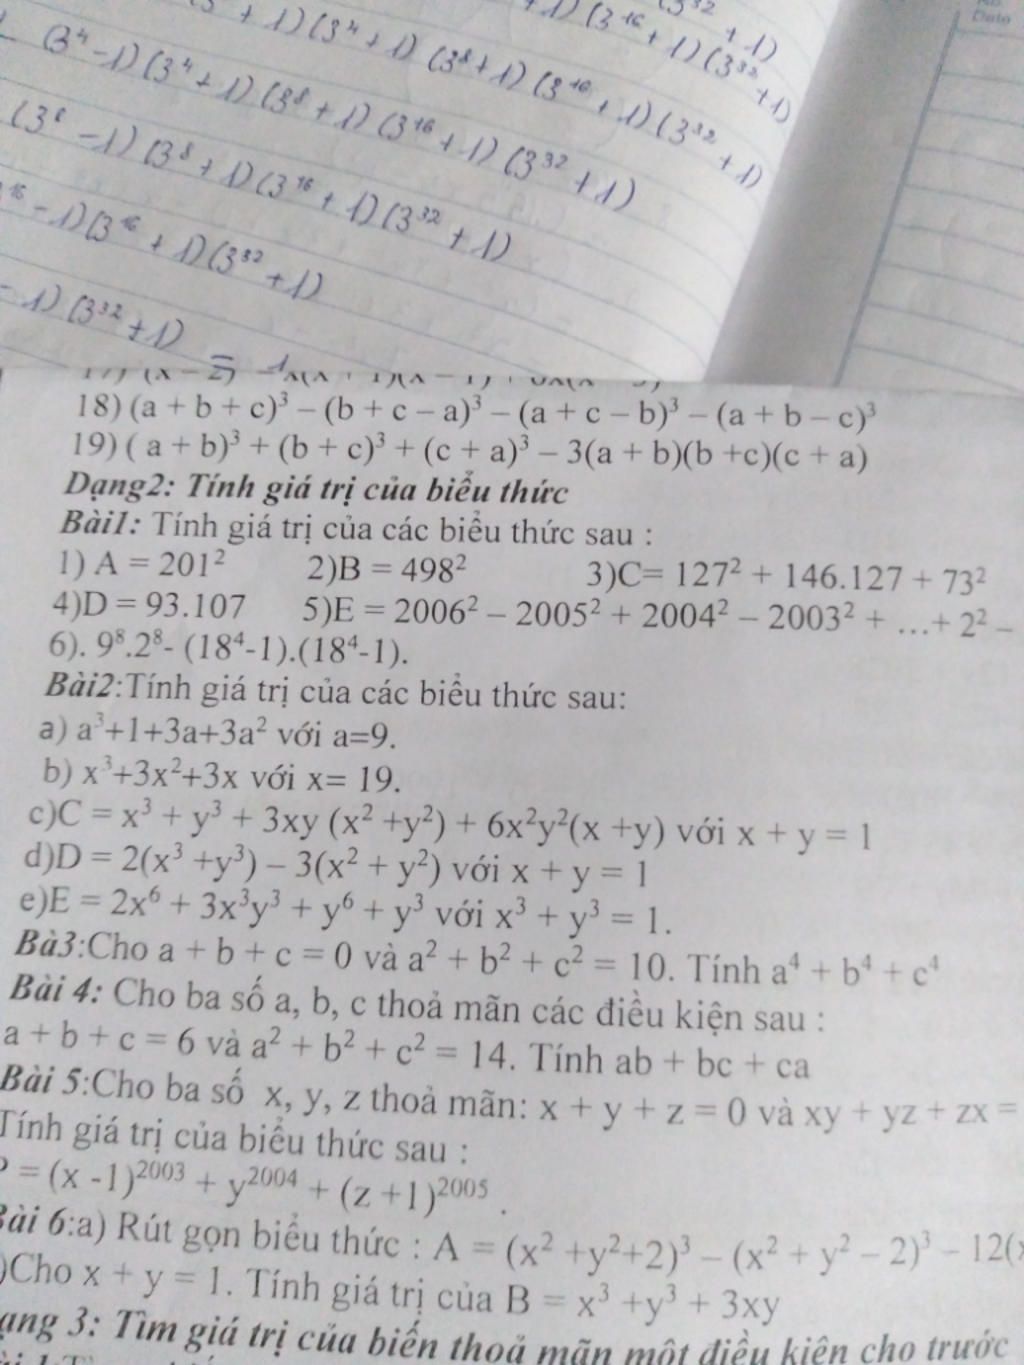 + 1)(3⁴ + 1)(3⁸ + 1)(3¹⁶ + 1)(3³² + 1)
(3⁴ - 1)(3⁴ + 1)(3⁸ + 1)(3¹⁶ + 1)(3³² + 1)
(3⁸ - 1)(3⁸ + 1)(3¹⁶ + 1)(3³² + 1)
¹⁶ - 1)(3¹⁶ + 1)(3³² + 1)
- 1)(3³² + 1)
+ 1)(3¹⁶ + 1)(3³² + 1)
3³² + 1)
Date
18) (a + b + c)³ – (b + c – a)³ – (a + c – b)³ – (a + b – c)³
19) ( a + b)³ + (b + c)³ + (c + a)³ – 3(a + b)(b +c)(c + a)
Dạng2: Tính giá trị của biểu thức
Bài1: Tính giá trị của các biểu thức sau :
1) A = 201² 2)B = 498² 3)C= 127² + 146.127 + 73²
4)D = 93.107 5)E = 2006² – 2005² + 2004² – 2003² + …+ 2² –
6). 9⁸.2⁸- (18⁴-1).(18⁴-1).
Bài2:Tính giá trị của các biểu thức sau:
a) a³+1+3a+3a² với a=9.
b) x³+3x²+3x với x= 19.
c)C = x³ + y³ + 3xy (x² +y²) + 6x²y²(x +y) với x + y = 1
d)D = 2(x³ +y³) – 3(x² + y²) với x + y = 1
e)E = 2x⁶ + 3x³y³ + y⁶ + y³ với x³ + y³ = 1.
Bà3:Cho a + b + c = 0 và a² + b² + c² = 10. Tính a⁴ + b⁴ + c⁴
Bài 4: Cho ba số a, b, c thoả mãn các điều kiện sau :
a + b + c = 6 và a² + b² + c² = 14. Tính ab + bc + ca
Bài 5:Cho ba số x, y, z thoả mãn: x + y + z = 0 và xy + yz + zx =
Tính giá trị của biểu thức sau :
= (x -1)²⁰⁰³ + y²⁰⁰⁴ + (z +1)²⁰⁰⁵ .
Bài 6:a) Rút gọn biểu thức : A = (x² +y²+2)³ – (x² + y² – 2)³ – 12(
)Cho x + y = 1. Tính giá trị của B = x³ +y³ + 3xy
ạng 3: Tìm giá trị của biến thoả mãn một điều kiện cho trước